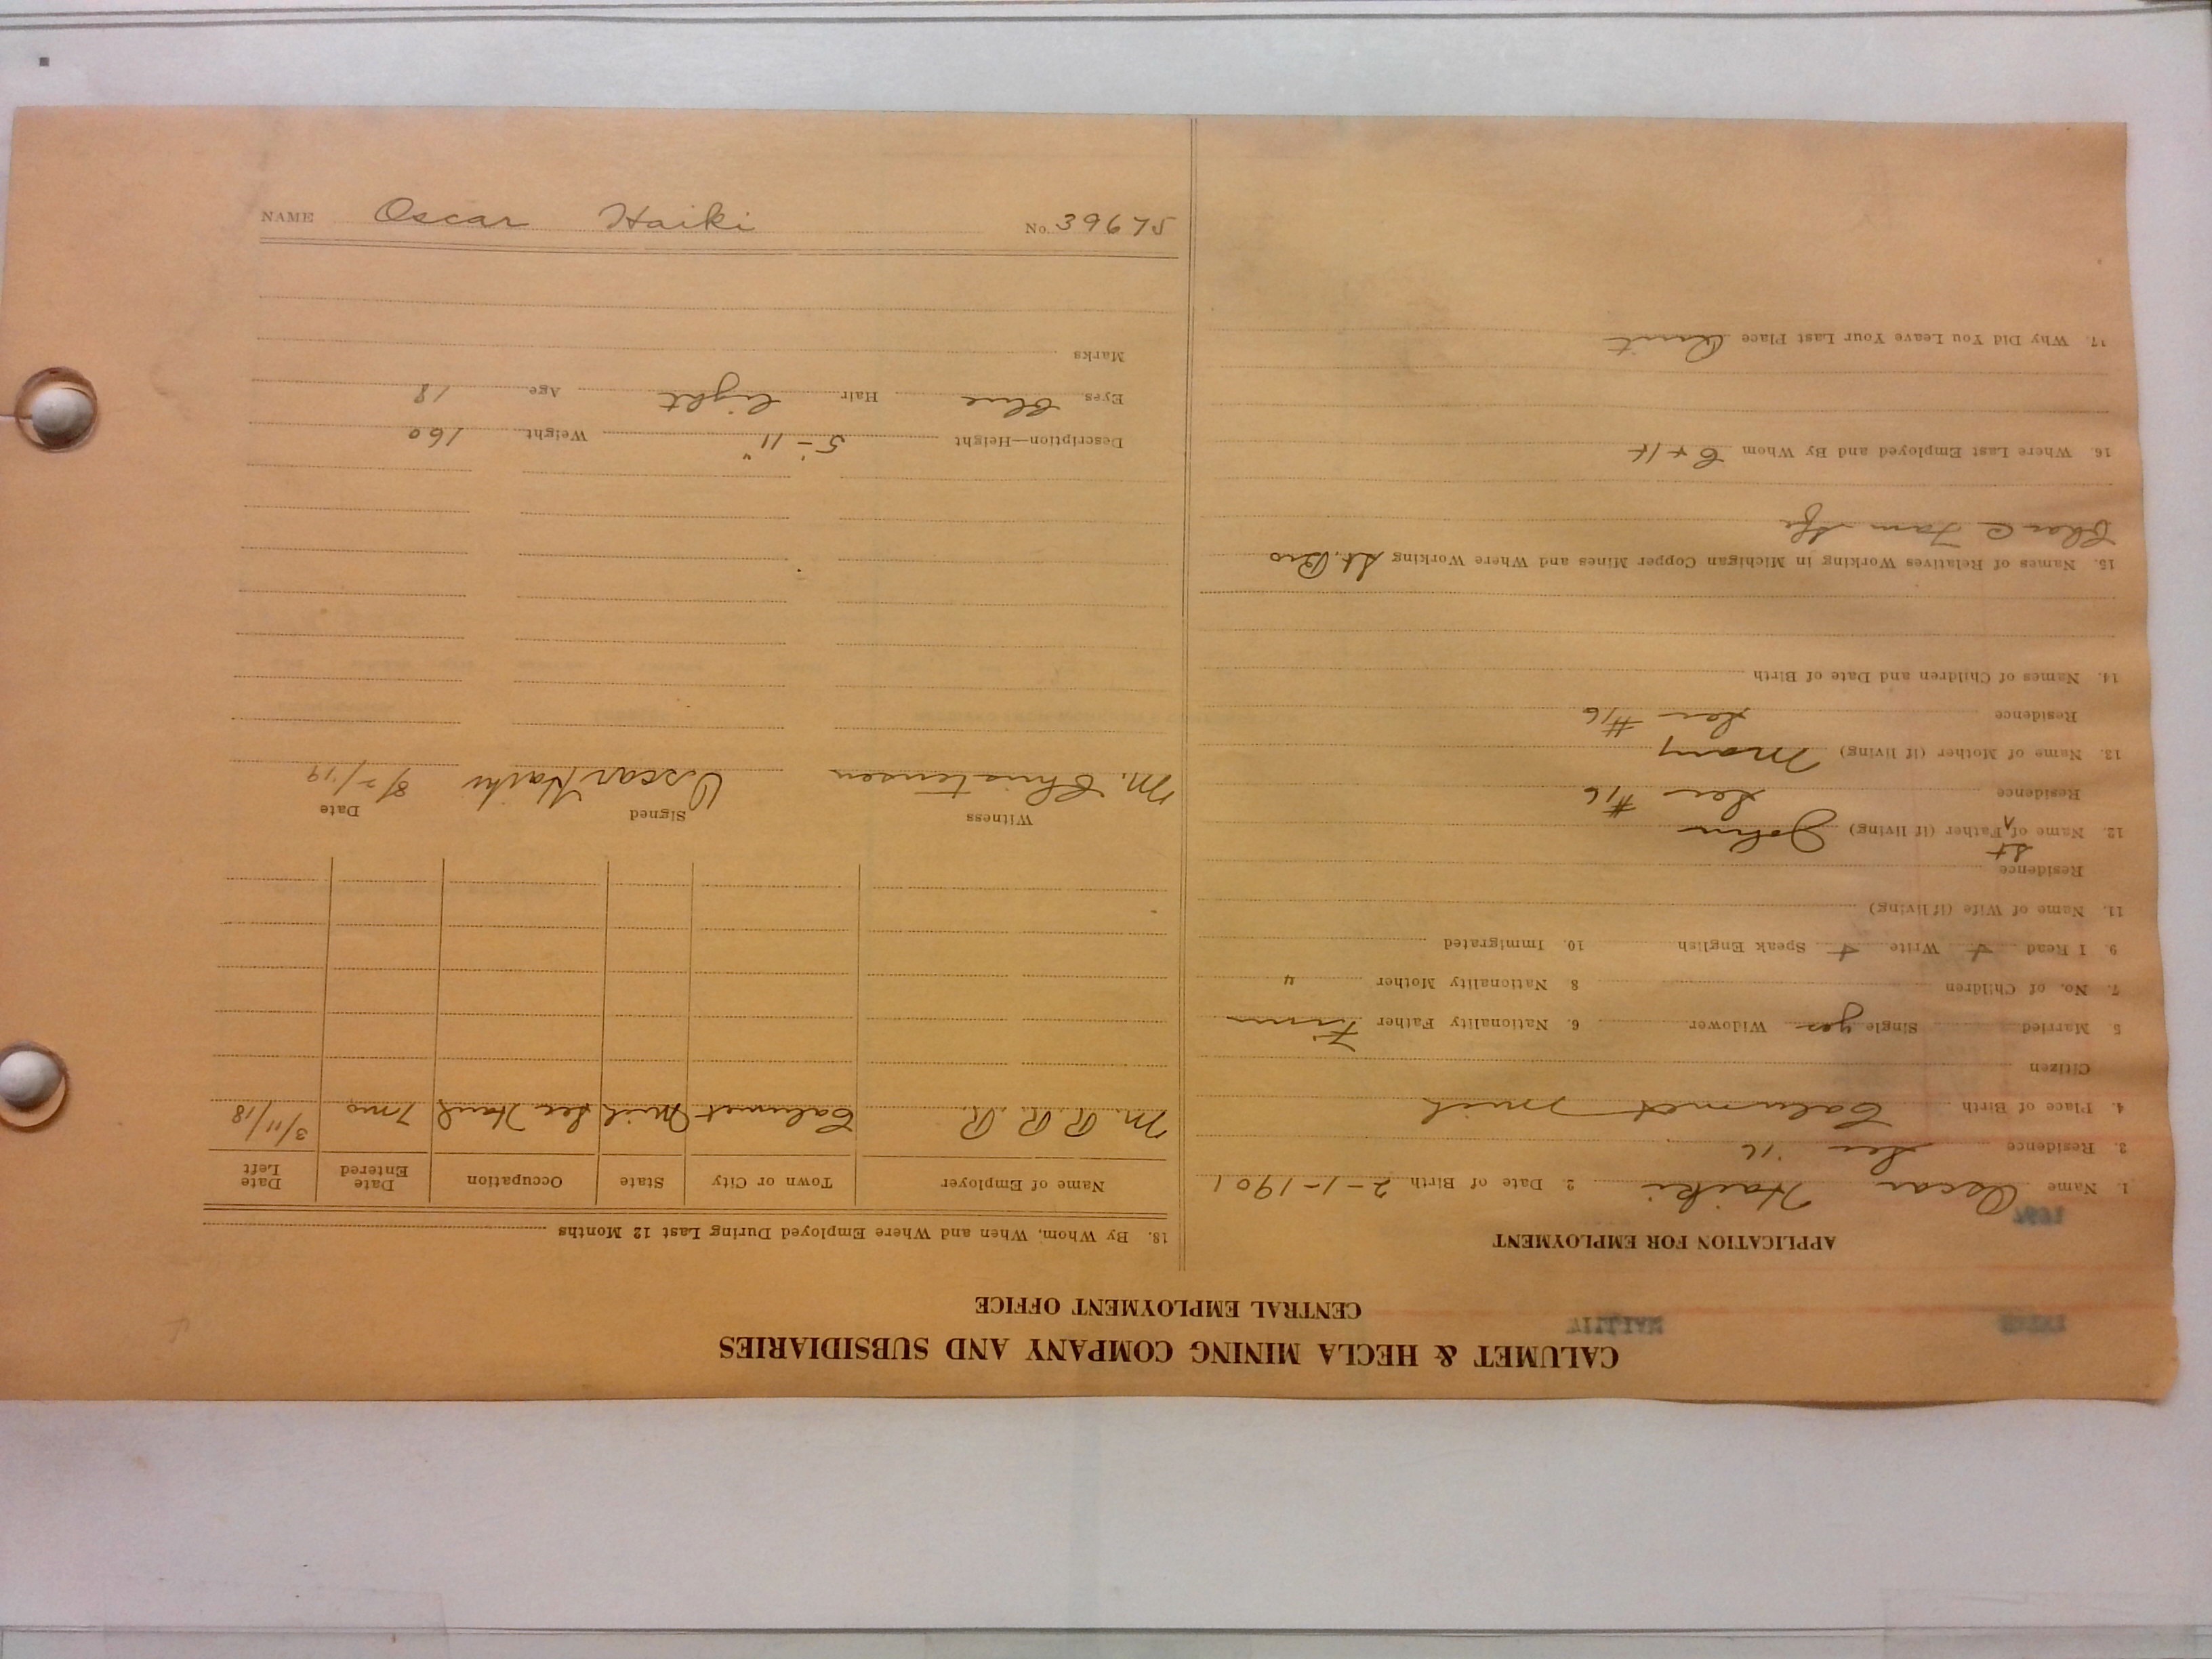 NAME Oscar Haiki No. 39675
CALUMET & HECLA MINING COMPANY AND SUBSIDIARIES
CENTRAL EMPLOYMENT OFFICE
APPLICATION FOR EMPLOYMENT
1. Name Oscar Haiki 2. Date of Birth 2-1-1901
3. Residence Sec 16
4. Place of Birth Calumet Mich
Citizen
5. Married Single yes Widower 6. Nationality Father Finn
7. No. of Children 8 Nationality Mother "
9. I Read + Write + Speak English 10. Immigrated
11. Name of Wife (if living)
Residence
12. Name of St Father (if living) John
Residence Sec #16
13. Name of Mother (if living) Mary
Residence Sec #16
14. Names of Children and Date of Birth
15. Names of Relatives Working in Michigan Copper Mines and Where Working St. Bro
16. Where Last Employed and By Whom C + H
17. Why Did You Leave Your Last Place Quit
18. By Whom, When and Where Employed During Last 12 Months
Name of Employer Town or City State Occupation Date Entered Date Left
M. R. R. R. Calumet Mich Sec Hand 7 mo 3/11/18
Witness Signed Date
M. Christensen Oscar Haiki 8/2/19
Description—Height 5'-11" Weight 160
Eyes Blue Hair light Age 18
Marks